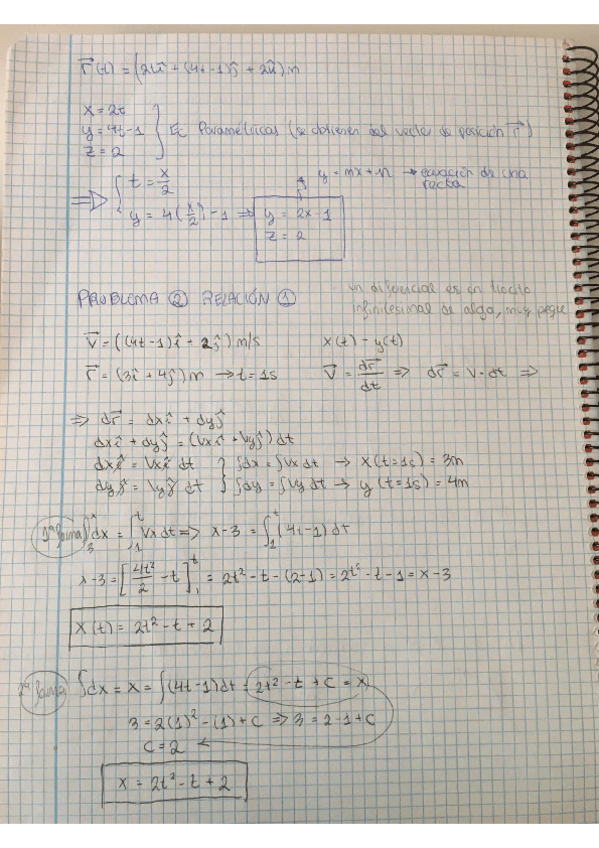 r⃗(t) = (2t î + (4t-1) ĵ + 2 k̂) m
x = 2t
y = 4t-1 } Ec Paramétricas (se obtienen del vector de posición r⃗)
z = 2
⇒ { t = x/2
y = mx + n → ecuación de una recta
y = 4(x/2) - 1 ⇒ y = 2x - 1
z = 2
PROBLEMA ② RELACIÓN ①
un diferencial es un trocito
infinitesimal de algo, muy peque
v⃗ = ((4t-1) î + 2 ĵ) m/s x(t) - y(t)
r⃗ = (3 î + 4 ĵ) m → t = 1s v⃗ = dr⃗/dt ⇒ dr⃗ = v · dt ⇒
⇒ dr⃗ = dx î + dy ĵ
dx î + dy ĵ = (Vx î + Vy ĵ) dt
dx î = Vx î dt } ∫dx = ∫Vx dt → x(t=1s) = 3m
dy ĵ = Vy ĵ dt } ∫dy = ∫Vy dt → y(t=1s) = 4m
1ª forma ∫₃ˣ dx = ∫₁ᵗ Vx dt ⇒ x-3 = ∫₁ᵗ (4t-1) dt
x-3 = [4t²/2 - t]₁ᵗ = 2t² - t - (2-1) = 2t² - t - 1 = x-3
x(t) = 2t² - t + 2
2ª forma ∫dx = x = ∫(4t-1) dt = 2t² - t + C = x
3 = 2(1)² - (1) + C ⇒ 3 = 2-1+C
C = 2
x = 2t² - t + 2